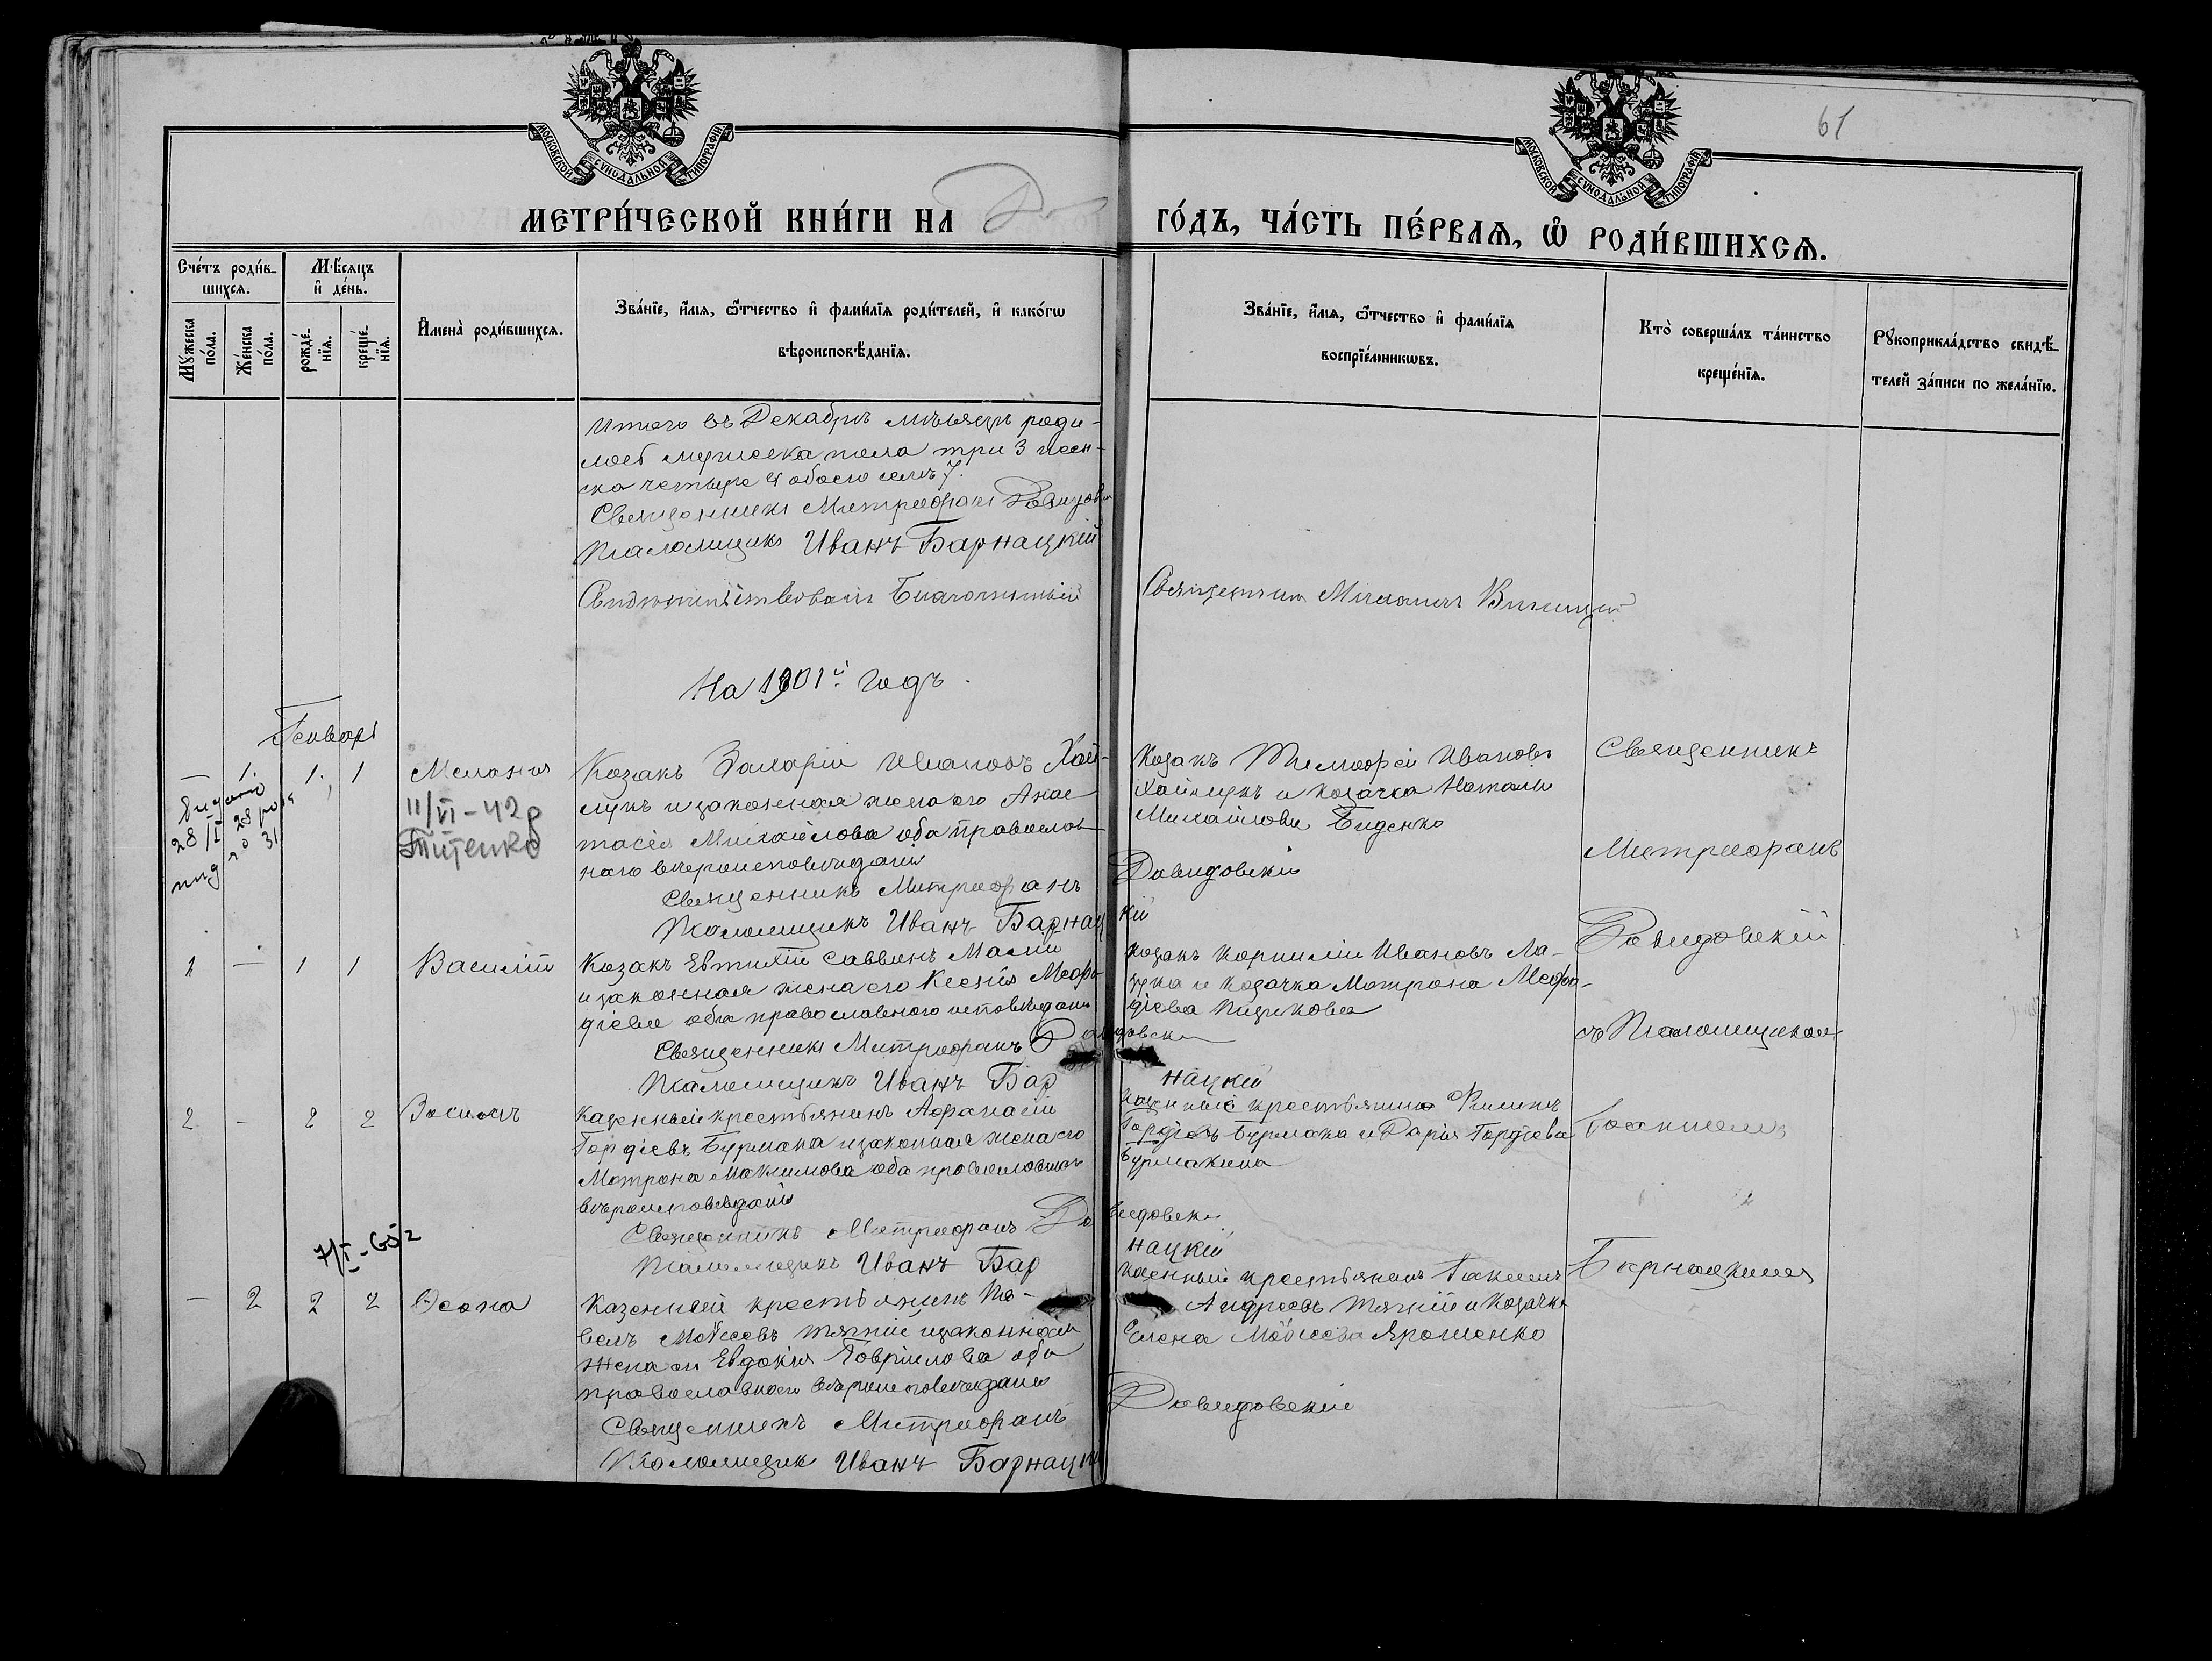 МОСКОВСКОЙ СѴНОДАЛЬНОЙ ТИПОГРАФІИ
МОСКОВСКОЙ СѴНОДАЛЬНОЙ ТИПОГРАФІИ
61
МЕТРИ́ЧЕСКОЙ КНИ́ГИ НА
ГО́ДЪ, ЧА́СТЬ ПЕ́РВАѦ, Ѽ РОДИ́ВШИХСѦ.
Сче́тъ роди́в-
шихсѧ.
Мѣ́сяцъ
и҆ де́нь.
Мꙋ́жеска
по́ла.
Же́нска
по́ла.
рожде́-
нїѧ.
креще́-
нїѧ.
И҆мена̀ роди́вшихсѧ.
Зва́нїе, и҆́мѧ, ѻ҆́тчество и҆ фами́лїѧ роди́телей, и҆ како́гѡ
вѣроисповѣ́данїѧ.
Зва́нїе, и҆́мѧ, ѻ҆́тчество и҆ фами́лїѧ
воспрїе́мникѡвъ.
Кто̀ соверша́лъ та́инство
креще́нїѧ.
Рꙋкоприкла́дство свидѣ́-
телей за́писи по жела́нїю.
Итого въ Декабрѣ мѣсяцѣ роди-
лось мужеска пола три 3 жен-
ска четыре 4 обоего семь 7.
Священникъ Митрофанъ
Псаломщикъ Иванъ Барнацкій
Свидѣтельствовалъ Благочинный
Священникъ
На 1901й годъ.
Генварь
— 1. 1. 1 Меланія
28/I 28
31
11/VI-42р
Титенко
Козакъ Захарій Ивановъ Хай-
лукъ и законная жена его Анас-
тасія Михайлова оба православ-
наго вѣроисповѣданія
Священникъ Митрофанъ Давидовскій
Псаломщикъ Иванъ Барнацкій
Козакъ Тимофей Ивановъ
Хайлукъ и козачка Наталія
Михайлова Биденко
Священникъ
Митрофанъ
Давидовскій
съ Псаломщикомъ
Іоанномъ
Барнацкимъ
1 — 1 1 Василій
Козакъ Евтихій Саввинъ Малій
и законная жена его Ксенія Мефо-
діева оба православного исповѣданія
Священникъ Митрофанъ Давидовскій
Псаломщикъ Иванъ Барнацкій
Козакъ Корнилій Ивановъ Ла-
зука и козачка Матрона Мефо-
діева
2 - 2 2 Василій
Казенный крестьянинъ Афанасій
Гордіевъ Бурмака и законная жена его
Матрона Максимова оба православнаго
вѣроисповѣданія
Священникъ Митрофанъ Давидовскій
Псаломщикъ Иванъ Барнацкій
Казенный крестьянинъ Филипъ
Гордіевъ Бурмака и Дарія Гордіева
Бурмакина
7/I-652
— 2 2 2 Ѳеона
Казенный крестьянинъ Па-
велъ Мойсеевъ Тягній и законная
жена его Евдокія Гавріилова оба
православнаго вѣроисповѣданія
Священникъ Митрофанъ Давидовскій
Псаломщикъ Иванъ Барнацкій
Казенный крестьянинъ Іакимъ
Андреевъ Тягній и козачка
Елена Мойсеева Ярошенко